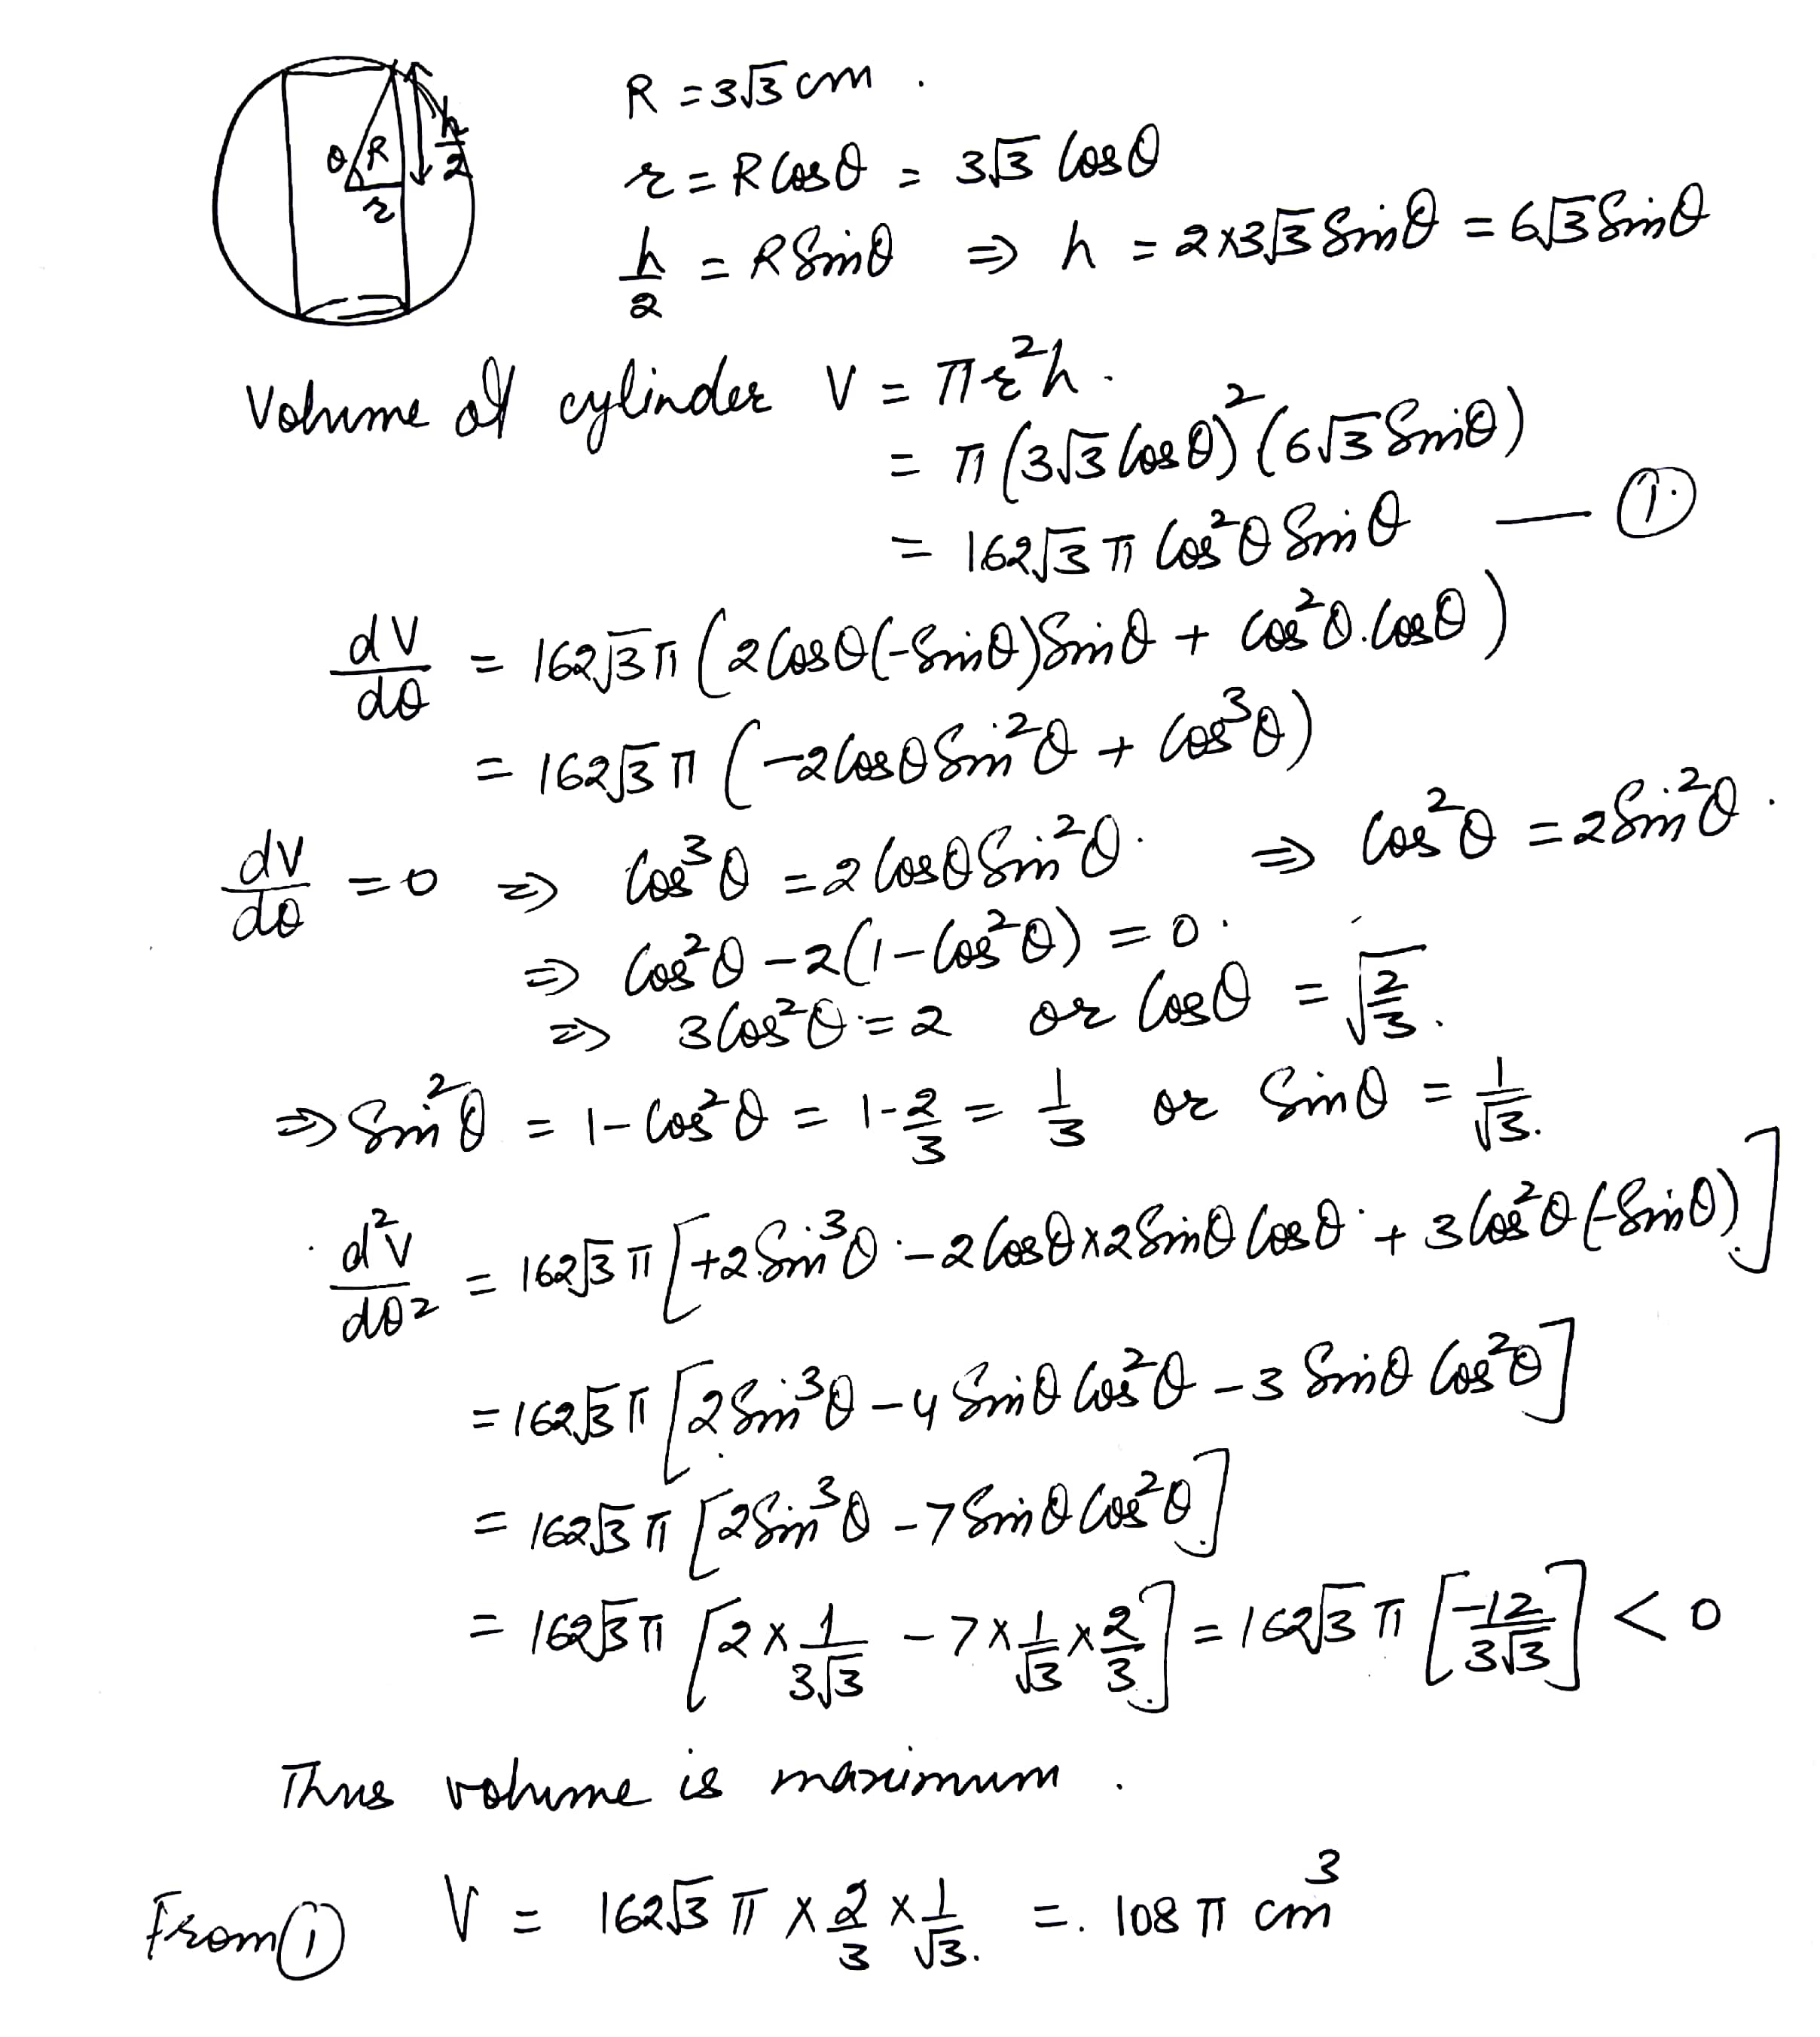 θ R r h/2
R = 3√3 cm .
r = R Cosθ = 3√3 Cosθ
h/2 = R Sinθ ⇒ h = 2×3√3 Sinθ = 6√3 Sinθ
Volume of cylinder V = πr²h .
= π (3√3 Cosθ)² (6√3 Sinθ)
= 162√3 π Cos²θ Sinθ — ①
dV/dθ = 162√3 π (2Cosθ(-Sinθ)Sinθ + Cos²θ.Cosθ)
= 162√3 π (-2Cosθ Sin²θ + Cos³θ)
dV/dθ = 0 ⇒ Cos³θ = 2CosθSin²θ. ⇒ Cos²θ = 2Sin²θ.
⇒ Cos²θ - 2(1-Cos²θ) = 0.
⇒ 3Cos²θ = 2 or Cosθ = √(2/3).
⇒ Sin²θ = 1-Cos²θ = 1-2/3 = 1/3 or Sinθ = 1/√3.
d²V/dθ² = 162√3 π [+2Sin³θ - 2Cosθ×2Sinθ Cosθ + 3Cos²θ(-Sinθ)]
= 162√3 π [2Sin³θ - 4 Sinθ Cos²θ - 3 Sinθ Cos²θ]
= 162√3 π [2Sin³θ - 7 Sinθ Cos²θ]
= 162√3 π [2×1/3√3 - 7×1/√3×2/3] = 162√3 π [-12/3√3] < 0
Thus volume is maximum .
From ① V = 162√3 π × 2/3 × 1/√3. = 108 π cm³